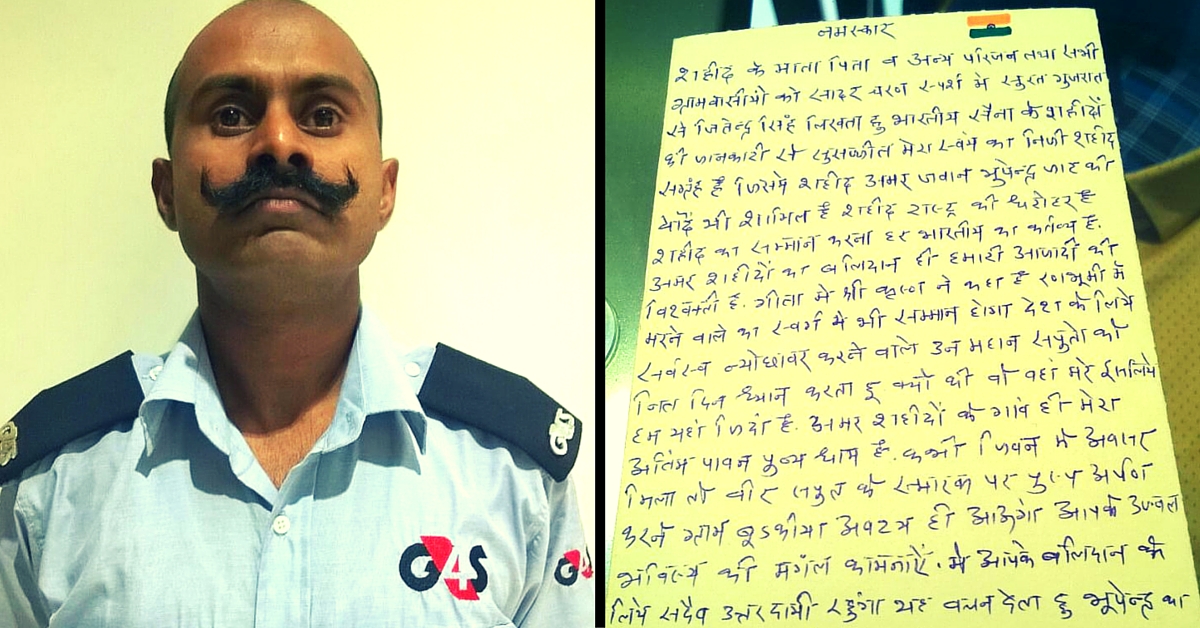 G4S
G4S
नमस्कार
शहीद के माता पिता व अन्य परिजन तथा सभी
ग्रामवासीयो को सादर चरण स्पर्श मे सुरत गुजरात
से जितेन्द्र सिंह लिखता हु भारतीय सैना के शहीदों
की जानकारी से सुसज्जीत मेरा स्वंय का निजी शहीद
संग्रह है जिसमे शहीद अमर जवान भुपेन्द्र जाट की
यादें भी शामिल है शहीद राष्ट्र की धरोहर है
शहीद का सम्मान करना हर भारतीय का कर्तव्य है.
अमर शहीदों का बलिदान ही हमारी आजादी की
है. गीता मे श्री कृष्ण ने कहा है रणभूमी मे
मरने वाले का स्वर्ग मे भी सम्मान होगा देश के लिये
सर्वस्व न्योछावर करने वाले उन महान सपुतो को
नित दिन ध्यान करता हू क्यो की वो वहां मरे इसलिये
हम यहां जिदां है. अमर शहीदों के गांव ही मेरा
अतिम पावन पुण्य धाम है. कभी जिवन मे अवसर
मिला तो वीर सपुत के स्मारक पर पुष्प अर्पण
करने ग्राम अवश्य ही आऊंगा आपके उज्वल
भविष्य की मंगल कामनाऐं. मे आपके बलिदान के
लिये सदैव उत्तरदायी रहुंगा यह वचन देता हु भूपेन्द्र का